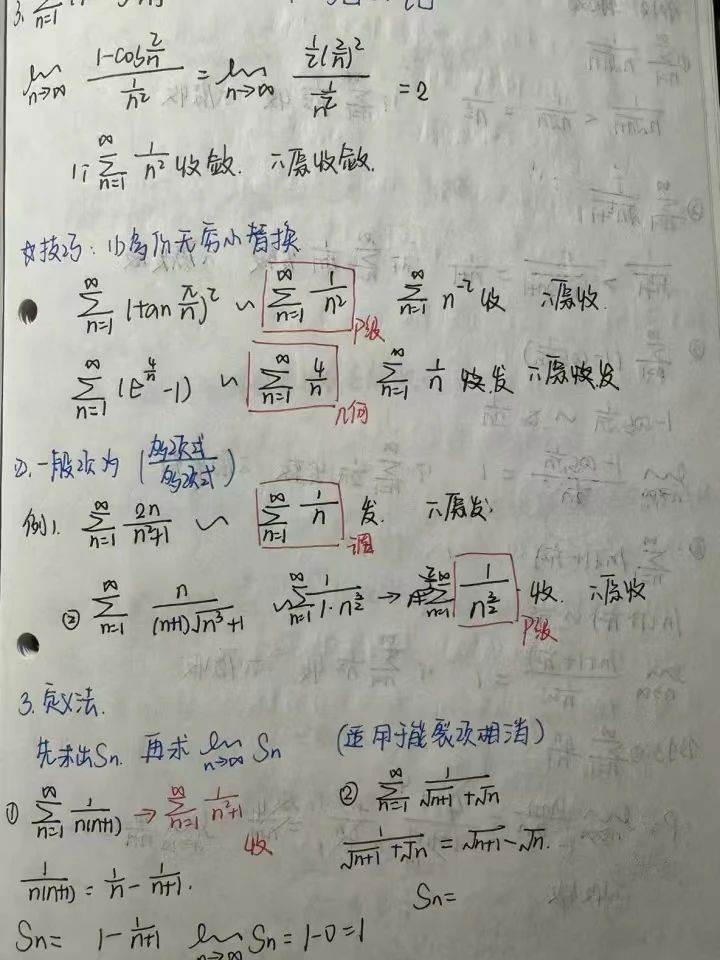 3. ∑_{n=1}
lim_{n→∞} (1-cos 2/n)/(1/n²) = lim_{n→∞} (½(2/n)²)/(1/n²) = 2
∵ ∑_{n=1}^{∞} 1/n² 收敛. ∴原收敛.
☆技巧: (1)等价无穷小替换
∑_{n=1}^{∞} (tan π/n)² ∽ ∑_{n=1}^{∞} 1/n² ∑_{n=1}^{∞} n^{-2} 收 ∴原收.
P级
∑_{n=1}^{∞} (e^{4/n} -1) ∽ ∑_{n=1}^{∞} 4/n ∑_{n=1}^{∞} 1/n 发 ∴原发
几何
②. 一般项为 (多项式/多项式)
例1. ∑_{n=1}^{∞} 2n/(n²+1) ∽ ∑_{n=1}^{∞} 1/n 发. ∴原发.
调
② ∑_{n=1}^{∞} n/((n+1)√(n³+1)) ∽ ∑_{n=1}^{∞} 1/(1·n^{3/2}) → ∑_{n=1}^{∞} 1/n^{3/2} 收. ∴原收
P级
3. 定义法.
先求出Sn. 再求 lim_{n→∞} Sn (适用于能裂项相消)
① ∑_{n=1}^{∞} 1/(n(n+1)) → ∑_{n=1}^{∞} 1/(n²+1) 收
1/(n(n+1)) = 1/n - 1/(n+1).
Sn = 1 - 1/(n+1) lim_{n→∞} Sn = 1-0 = 1
② ∑_{n=1}^{∞} 1/(√(n+1) + √n)
1/(√(n+1) + √n) = √(n+1) - √n.
Sn =